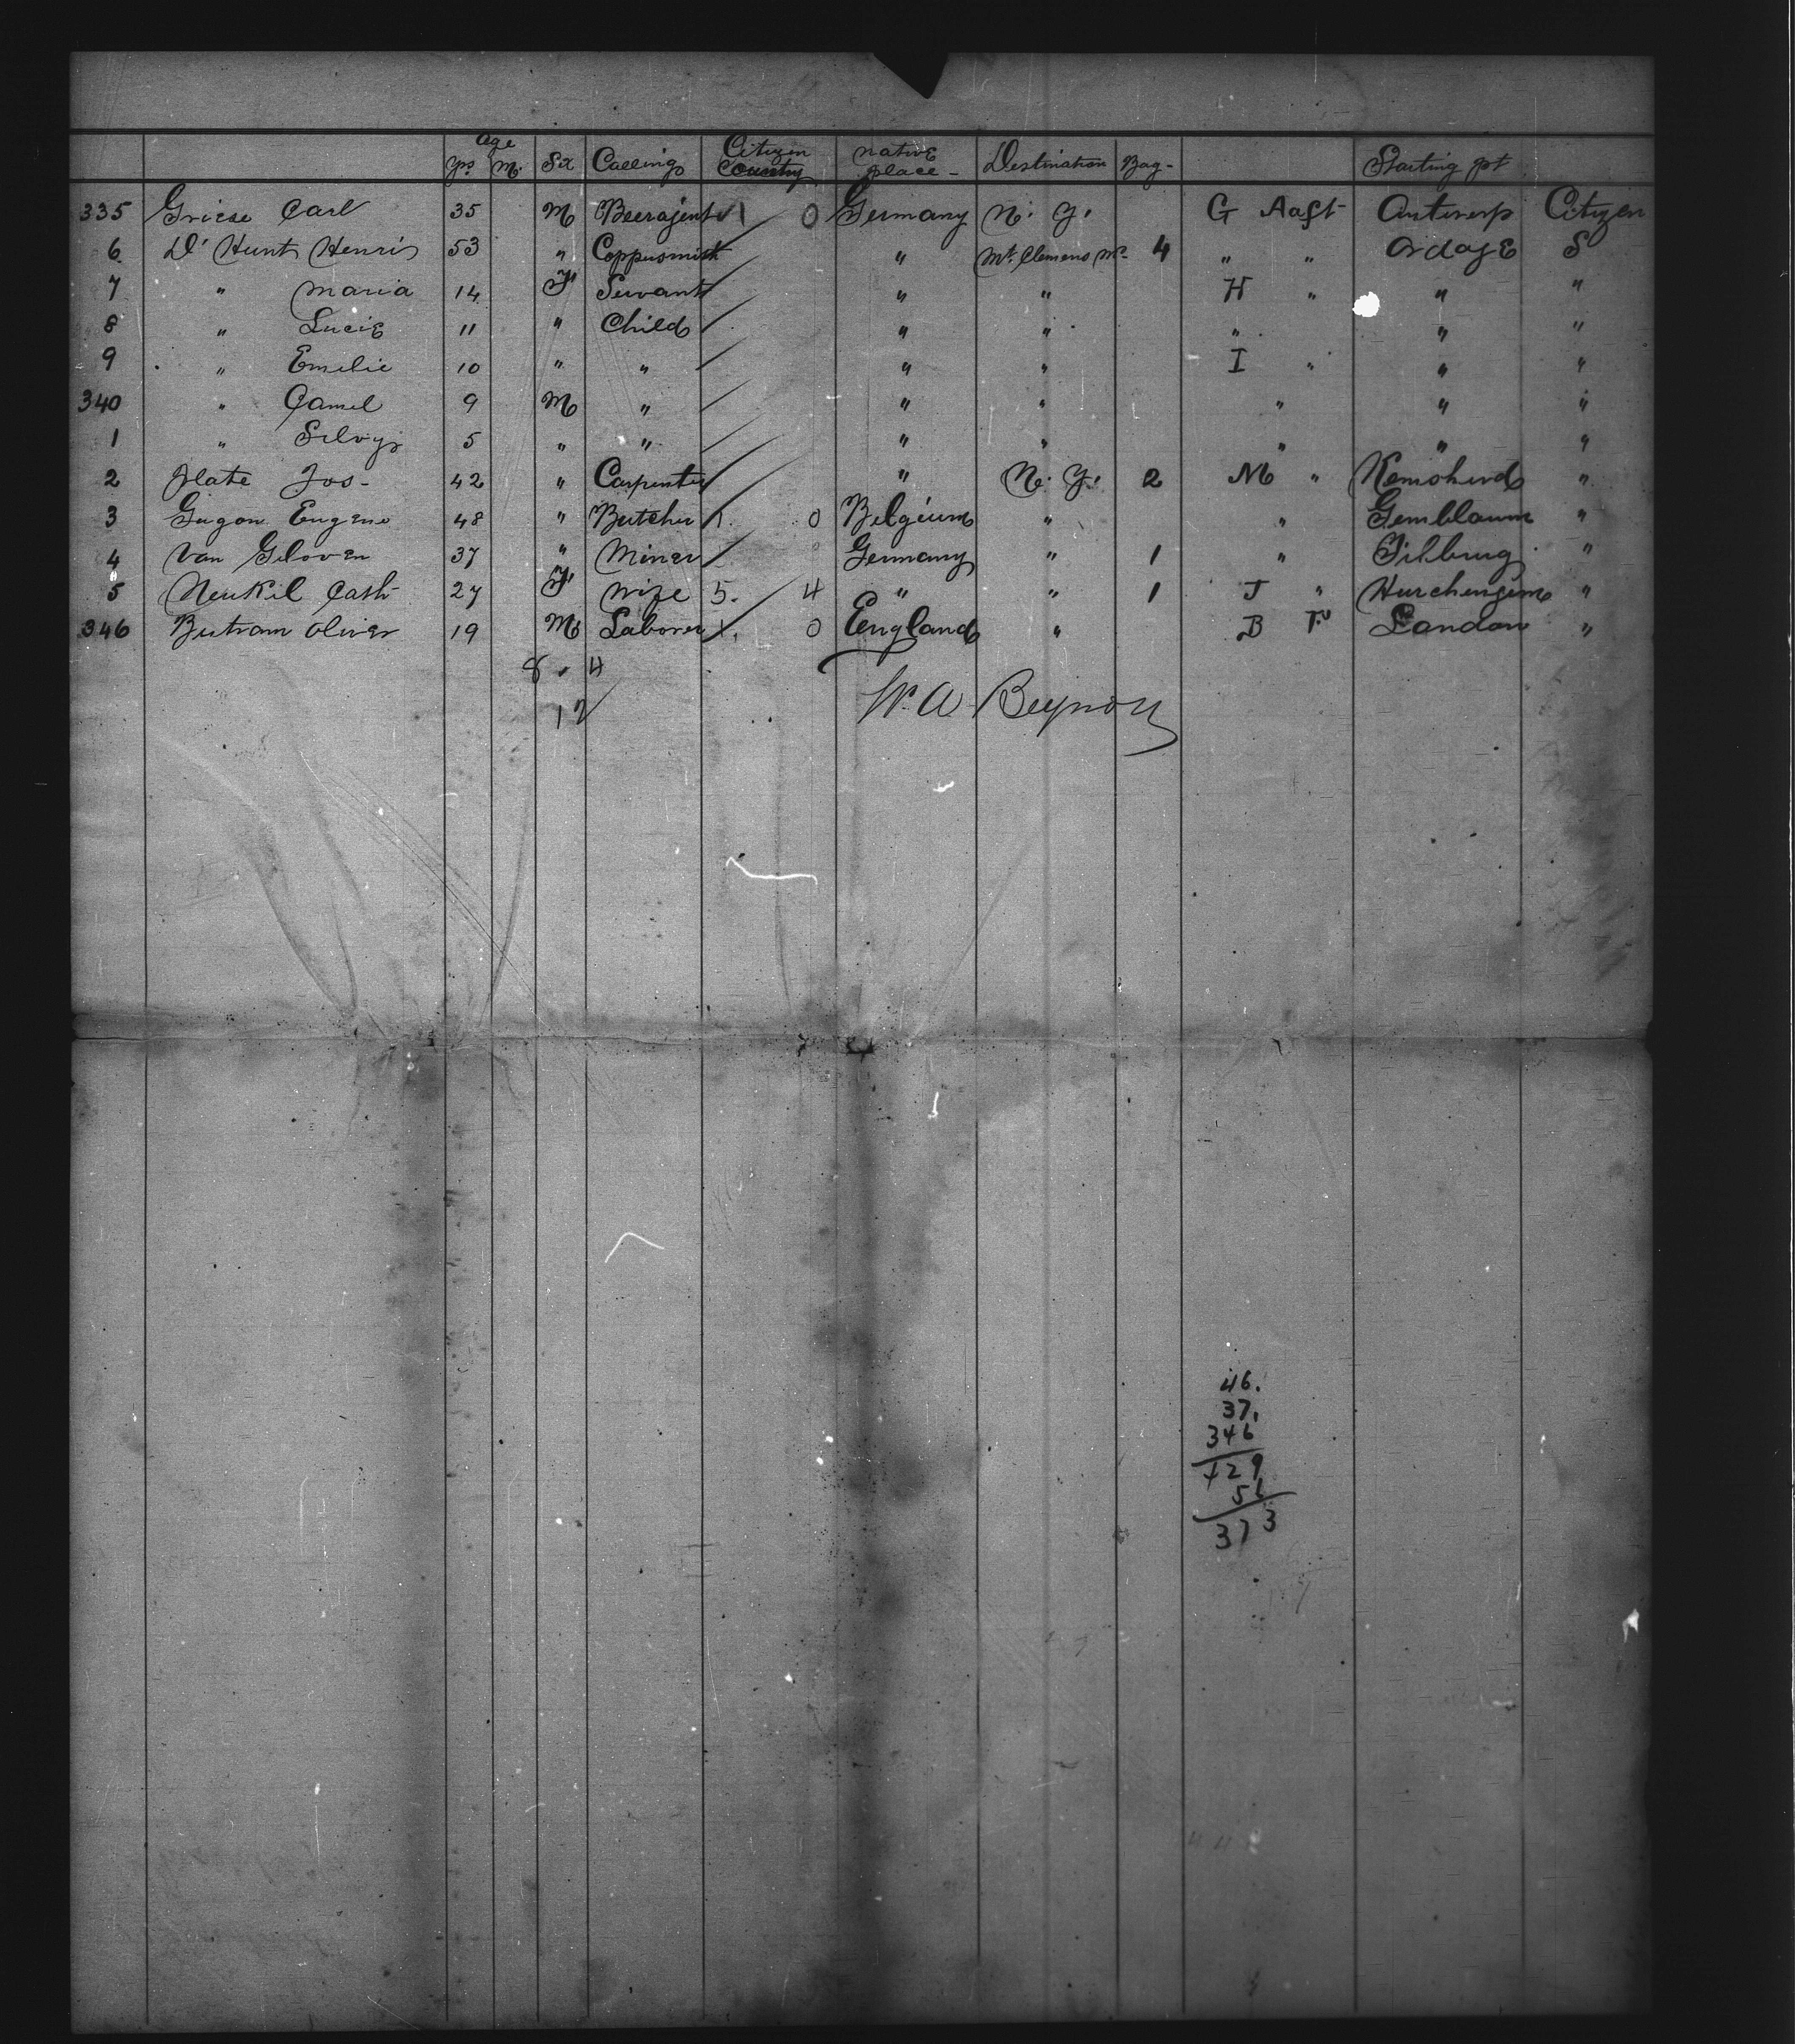 Age Citizen native
Yrs. M. Sex Calling Country place - Destination Bag - Starting pt
335 Griese Carl 35 M Beerajent 1 0 Germany N. Y. G Aaft Antwerp Citizen
6 D'Hunt Henri 53 " Coppersmith " Mt. Clemens 4 " " S
7 " Maria 14 F Servant " " H " " "
8 " Lucie 11 " Child " " " " "
9 " Emelie 10 " " " " I " " "
340 " Camel 9 M " " " " " "
1 " Silvy 5 " " " " " " "
2 Plate Jos- 42 " Carpenter " N. Y. 2 M " "
3 Gugon Eugene 48 " Butcher 1. 0 Belgium " " "
4 Van Giloven 37 " Miner Germany " 1 " Tilburg "
5 Neukil Cath 27 F Wife 5. 4 " " 1 J " "
346 Butram Oliver 19 M Laborer 0 England " B London "
8 . 4
12 W. A. Beynon
46.
37.
346
429
56
373